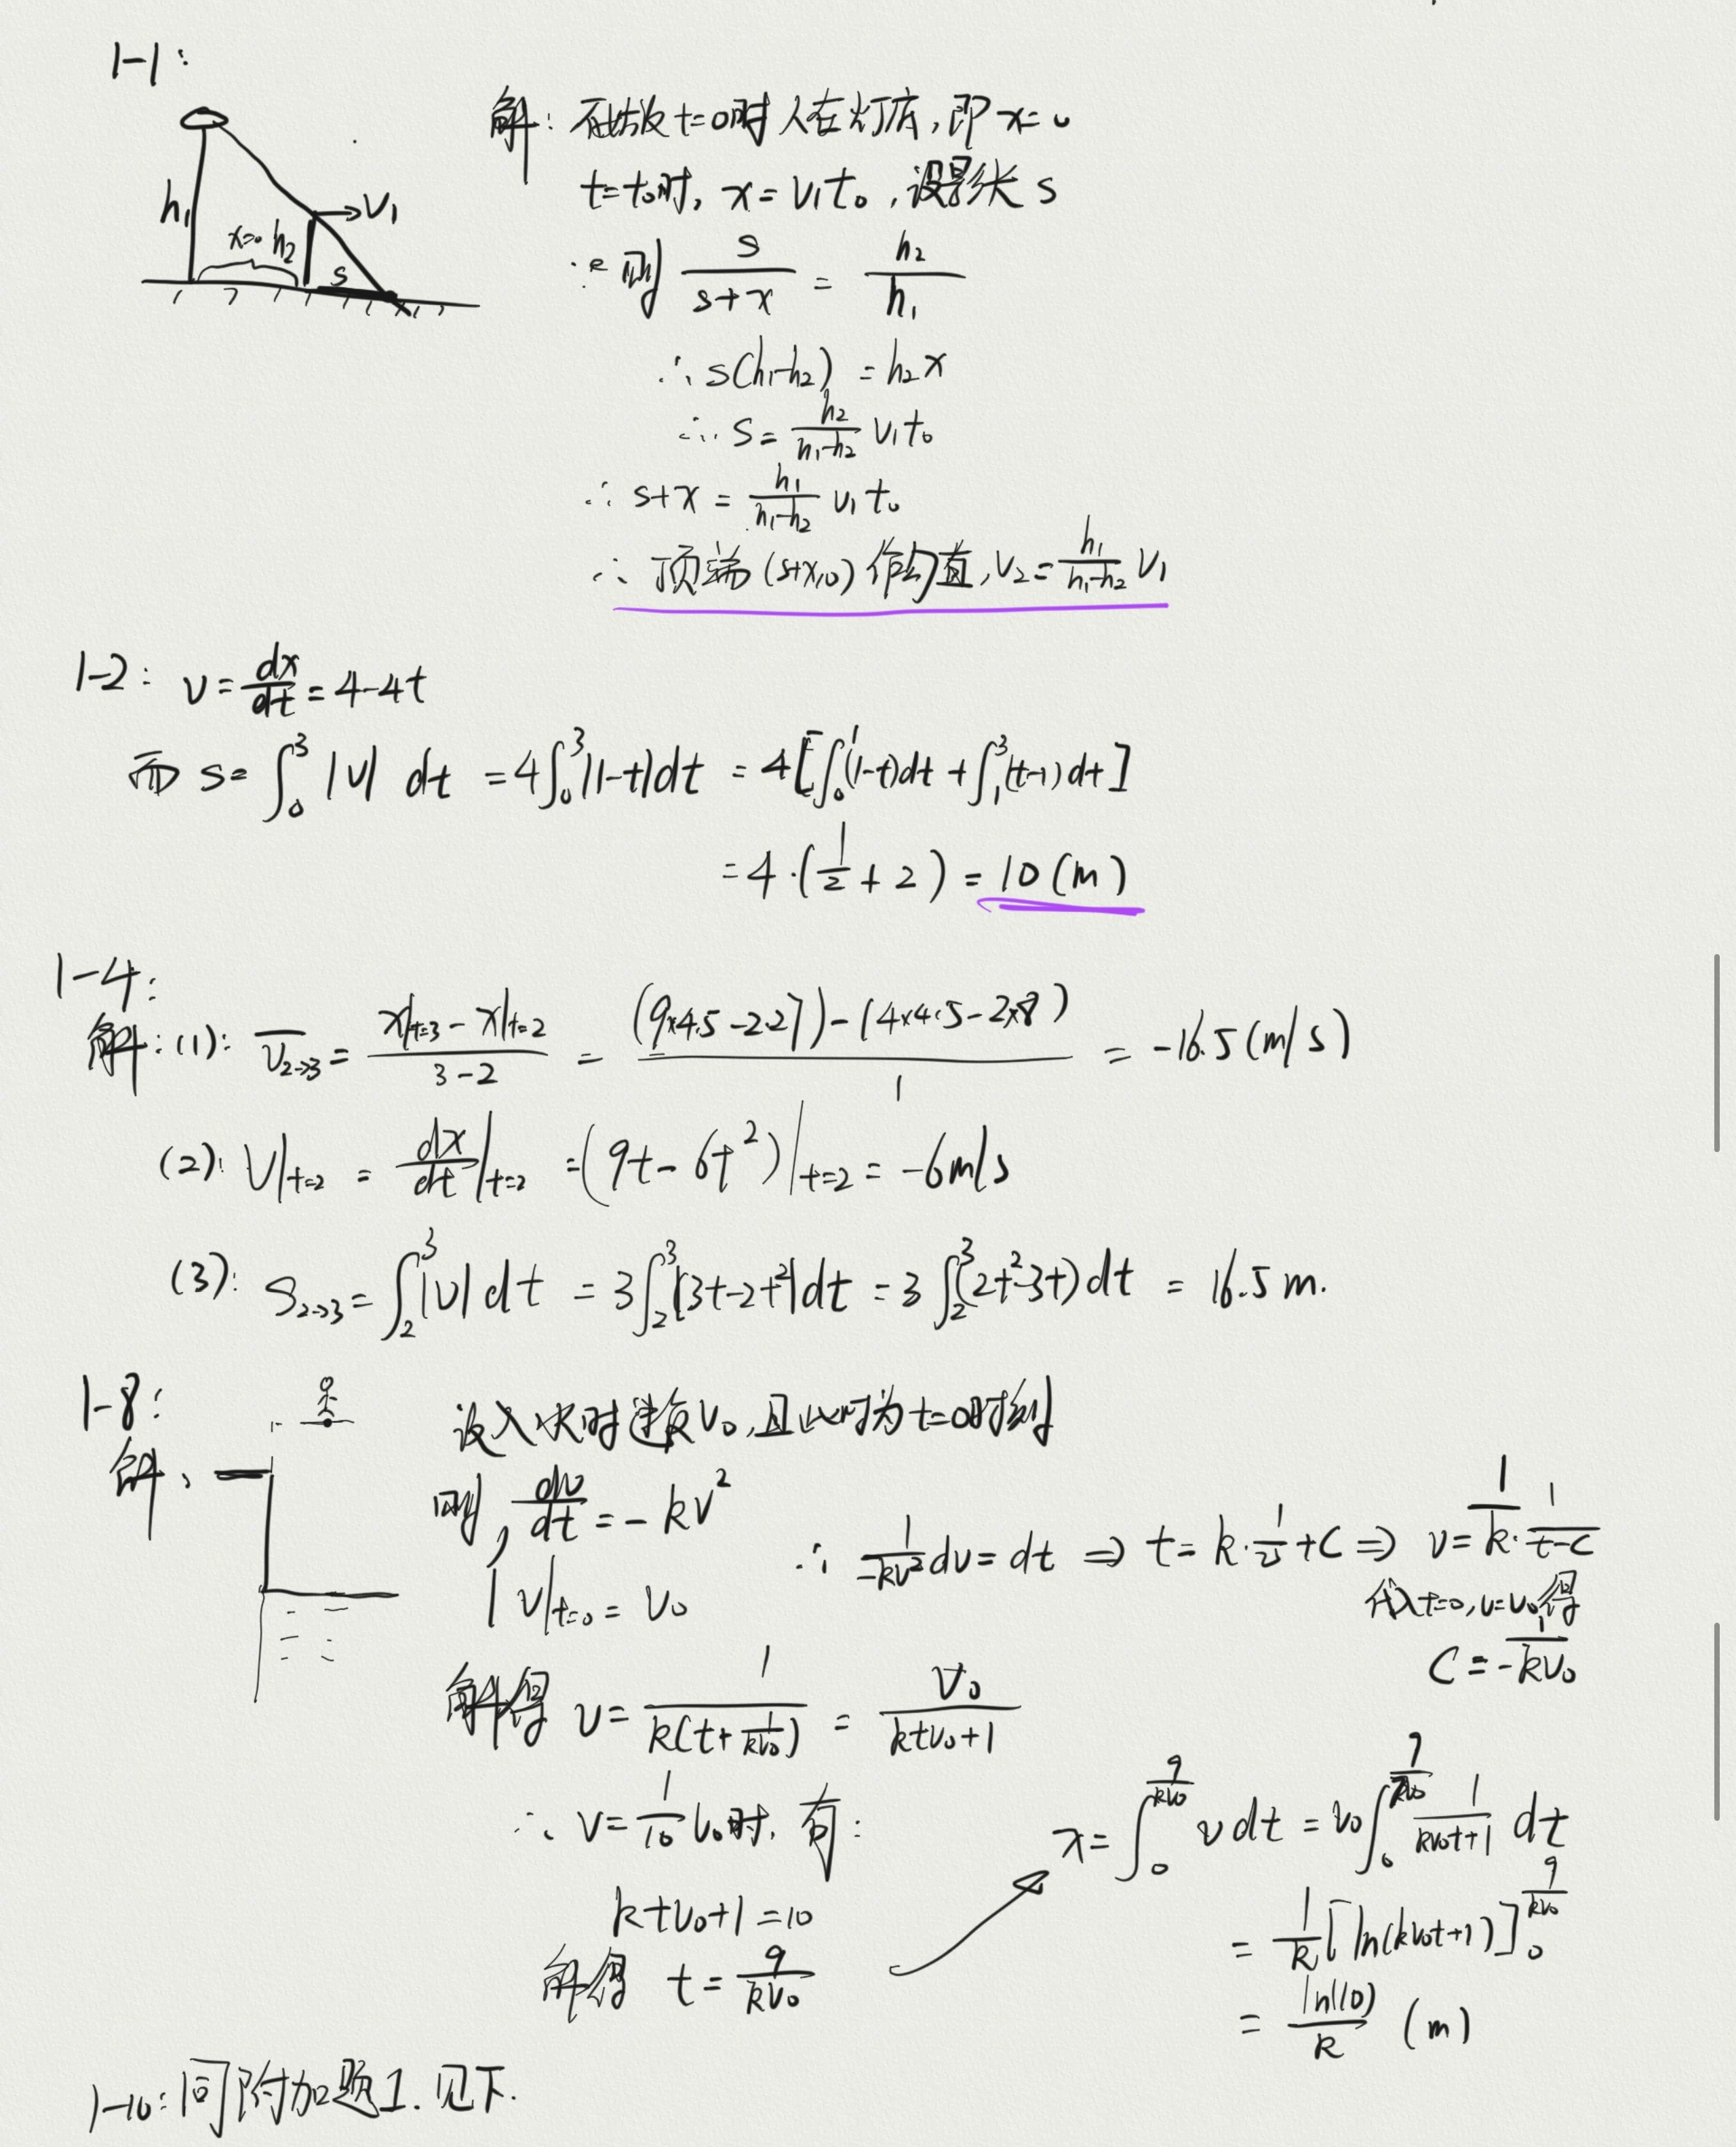 1-1:
h₁ x=0 h₂ s v₁
解: 不妨设 t=0时 人在灯底, 即 x=0
t=t₀时, x=v₁t₀, 设影长 s
则 s/(s+x) = h₂/h₁
∴ s(h₁-h₂) = h₂x
∴ s= h₂/(h₁-h₂) v₁t₀
∴ s+x = h₁/(h₁-h₂) v₁t₀
∴ 顶端 (s+x,0) 作匀直, v₂= h₁/(h₁-h₂) v₁
1-2: v= dx/dt = 4-4t
而 s= ∫₀³ |v| dt = 4∫₀³|1-t|dt = 4[∫₀¹(1-t)dt + ∫₁³(t-1)dt]
= 4·(1/2 + 2) = 10 (m)
1-4:
解: (1): v̅₂→₃ = (x|t=3 - x|t=2)/(3-2) = ((9×4.5-2·27)-(4×4.5-2×8))/1 = -16.5 (m/s)
(2): v|t=2 = dx/dt|t=2 = (9t-6t²)|t=2 = -6m/s
(3): S₂→₃ = ∫₂³|v|dt = 3∫₂³|3t-2t²|dt = 3∫₂³(2t²-3t)dt = 16.5 m.
1-8:
解、
设入水时速度v₀, 且此时为t=0时刻
则, dv/dt = -kv²
v|t=0 = v₀
∴ 1/(-kv²) dv = dt ⇒ t= k·1/v + C ⇒ v= 1/k · 1/(t-C)
代入t=0, v=v₀得
C = -1/(kv₀)
解得 v= 1/(k(t+1/(kv₀))) = v₀/(ktv₀+1)
∴ v= 1/10 v₀时, 有:
ktv₀+1 =10
解得 t= 9/(kv₀)
x= ∫₀^(9/(kv₀)) v dt = v₀∫₀^(9/(kv₀)) 1/(kv₀t+1) dt
= 1/k [ln(kv₀t+1)]₀^(9/(kv₀))
= ln(10)/k (m)
1-10: 同附加题1. 见下.